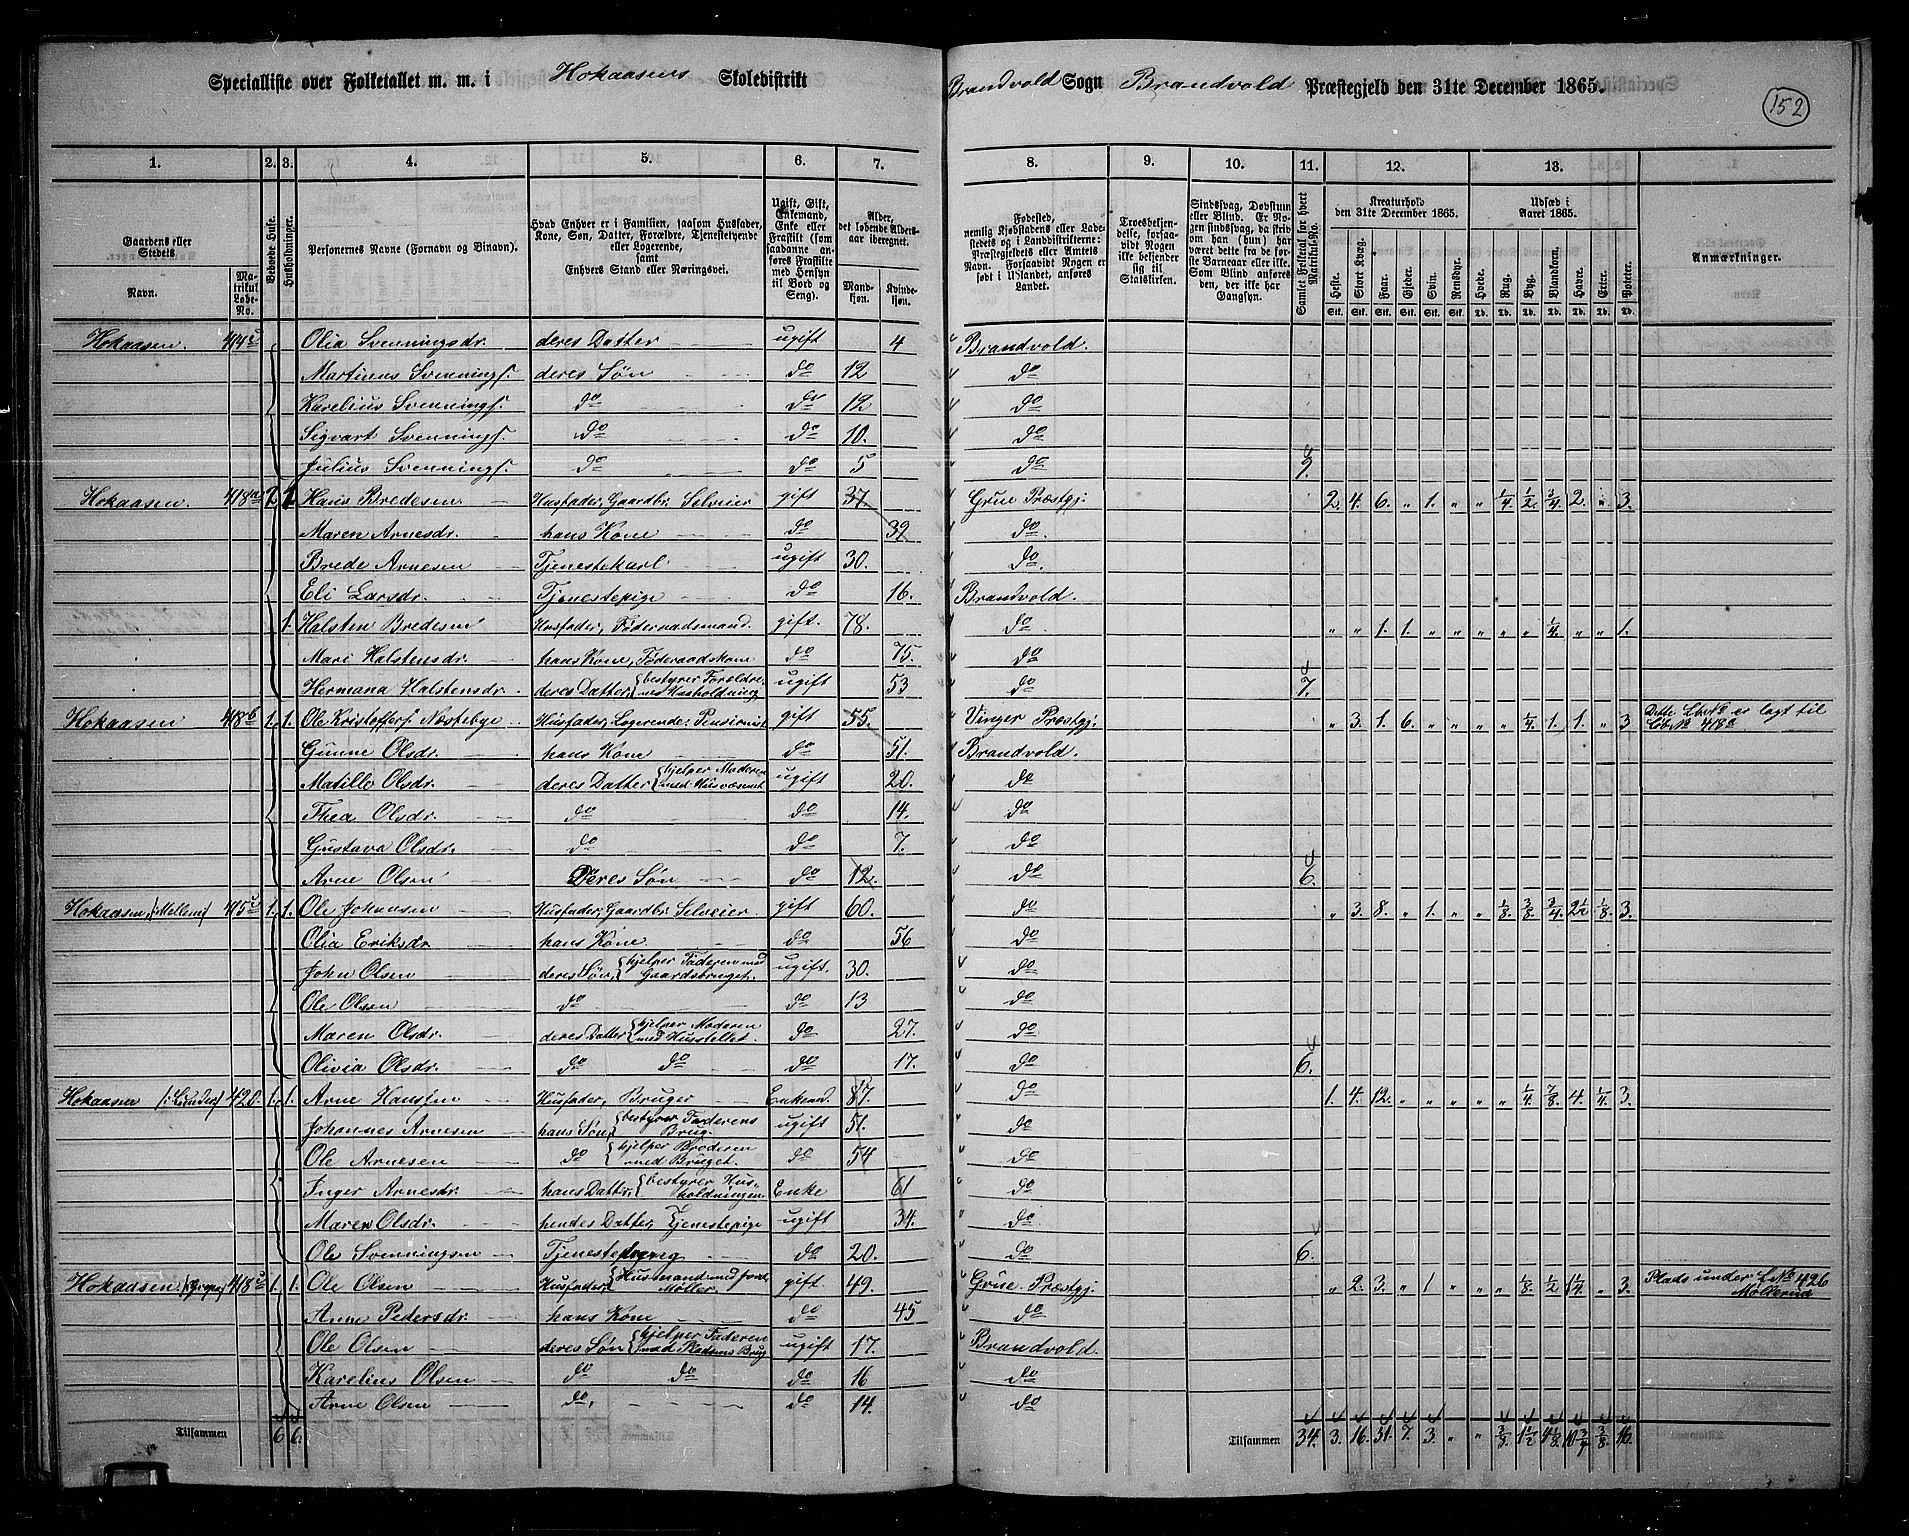 Specialliste over Folketallet m. m. i Hokaasens Skoledistrikt Brandvold Sogn Brandvold Præstegjeld den 31te December 1865.
152
1. 2. 3. 4. 5. 6. 7. 8. 9. 10. 11. 12. 13.
Gaardens eller Stedets
Navn.
Matrikul Løbe-No.
Beboede Huse.
Husholdninger.
Personernes Navne (Fornavn og Binavn).
Hvad Enhver er i Familien, saasom Husfader, Kone, Søn, Datter, Forældre, Tjenestetyende eller Logerende, samt Enhvers Stand eller Næringsvei.
Ugift, Gift, Enkemand, Enke eller Fraskilt (som saadanne anføres Fraskilte med Hensyn til Bord og Seng).
Alder, det løbende Aldersaar iberegnet.
Mandkjøn. Kvindekjøn.
Fødested, nemlig Kjøbstadens eller Ladestedets og i Landdistrikterne: Præstegjeldets eller Amtets Navn. Forsaavidt Nogen er født i Udlandet, anføres Landet.
Troesbekjendelse, forsaavidt Nogen ikke bekjender sig til Statskirken.
Sindssvag, Døvstum eller Blind. Er Nogen sindssvag, da skriv om han (hun) har været dette fra de første Barneaar eller ikke. Som Blind anføres den, der ikke har Gangsyn.
Samlet Folketal for hvert Matrikuls-No.
Kreaturhold den 31te December 1865.
Heste. Stort Kvæg. Faar. Gjeder. Svin. Rensdyr.
Udsæd i Aaret 1865.
Hvede. Rug. Byg. Blandkorn. Havre. Erter. Poteter.
Anmærkninger.
Hokaasen. 414c Olia Svenningsdr. deres Datter ugift 4 Brandvold.
Martinus Svennings. deres Søn do 12 do
Karelius Svennings. do do 12 do
Sigvart Svennings. do do 10. do
Julius Svennings. do do 5 do 9.
Hokaasen. 418a 2 1. Hans Bredesen Husfader, Gaardbr. Selveier gift 37. Grue Præstgj. 2. 4. 6. " 1. " " 1/4 1/2 3/4 2. " 3.
Maren Arnesdr. hans Kone do 39 do.
Brede Arnesen Tjenestekarl ugift 30. do.
Eli Larsdr. Tjenestepige do 16. Brandvold.
1. Halsten Bredesen Husfader, Føderaadsmand. gift. 78. do " " 1. 1. " " " " " 1/4 " " 1.
Mari Halstensdr. hans Kone, Føderaadskone do 75. do
Hermana Halstensdr. deres Datter, bestyrer Forældrenes Husholdning ugift 53 do 7.
Hokaasen 418b 1. 1. Ole Kristoffers. Næstebye Husfader, Logerende, Pensionist gift 55. Vinger Præstgj. " 3. 1. 6. " " " " 1/4 1. 1. " 3 Dette LbNo er lagt til LbNo 418a
Gunne Olsdr. hans Kone do 51. Brandvold.
Matille Olsdr. deres Datter hjelper Moderen med Husvæsenet ugift 20. do
Thea Olsdr. do do 14. do
Gustava Olsdr. do do 7. do
Arne Olsen Deres Søn do 12. do 6.
Hokaasen, (Mellem) 415c 1. 1. Ole Johansen Husfader, Gaardbr. Selveier. gift 60. do " 3. 8. " 1. " " 1/8. 3/8. 3/4. 2 1/2 1/8. 3.
Olia Eriksdr. hans Kone. do 56 do
John Olsen deres Søn, hjelper Faderen med Gaardsbruget. ugift. 30. do
Ole Olsen do do 13 do
Maren Olsdr. deres Datter hjelper Moderen med Husstellet. do 27. do
Olivia Olsdr. do do do 17. do 6.
Hokaasen 420. 1. 1. Arne Hansen Husfader, Bruger Enkemd. 87. do 1. 4. 12. " " " " " 1/4 7/8 4. 1/4. 3.
Johannes Arnesen hans Søn, bestyrer Faderens Brug. ugift 51. do
Ole Arnesen do hjelper Broderen med Bruget. do 54 do
Inger Arnesdr. hans Datter, bestyrer Husholdningen Enke 61 do
Maren Olsdr. hendes Datter, Tjenestepige ugift 34. do
Ole Svenningsen Tjenestedreng do 20. do 6.
Hokaasen 418c 1. 1. Ole Olsen Husfader, Husmand med Jord, Møller. gift 49. Grue Præstgj. " 2. 3. " 1 " " " 1/8. 1/2 1 1/4 " 3. Plads under LNo 426 Møllerud
Anne Pedersdr. hans Kone do 45 do
Ole Olsen deres Søn hjelper Faderen med Pladsens Brug ugift 17. Brandvold.
Karelius Olsen do do do 16 do
Arne Olsen do. do 14. do
Tilsammen 6 6. Tilsammen 34. 3. 16. 31. 7. 3. " " 3/8. 1 1/2 4 1/8. 10 3/4 3/8. 16.